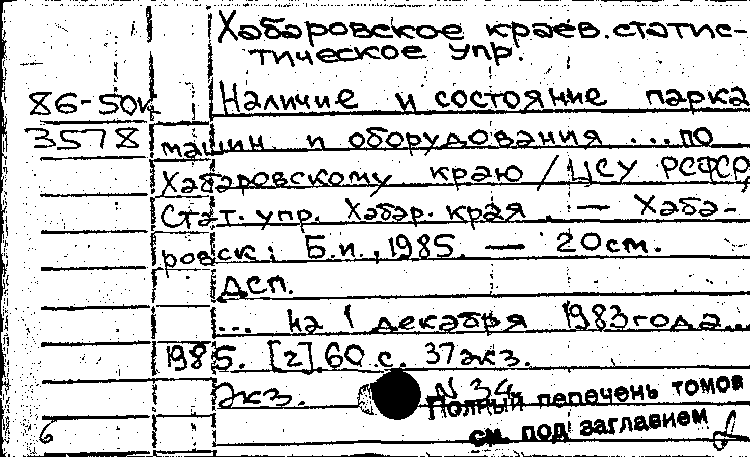 Хабаровское краев. статис-
тическое упр.
86-50к Наличие и состояние парка
3578 машин и оборудования ... по
Хабаровскому краю / ЦСУ РСФСР,
Стат. упр. Хабар. края . — Хаба-
ровск : Б.и., 1985. — 20см.
ДСП.
... на 1 декабря 1983 года...
1985. [2], 60 с. 37 экз.
Экз. N 34
Полный перечень томов
см. под заглавием
6